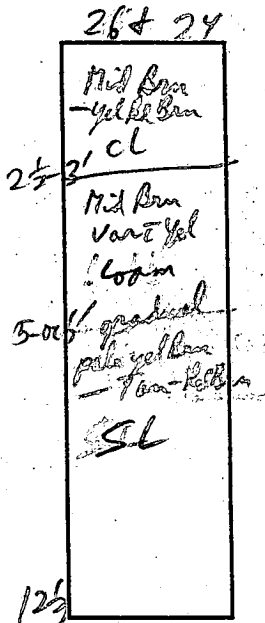 26 & 24
Mid Brn
- yel Rd Brn
CL
2 ½-3'
Mid Brn
Var c̄ Yel
Loam
gradual
pale yel Brn
- Tan - Rd Brn
SL
12½